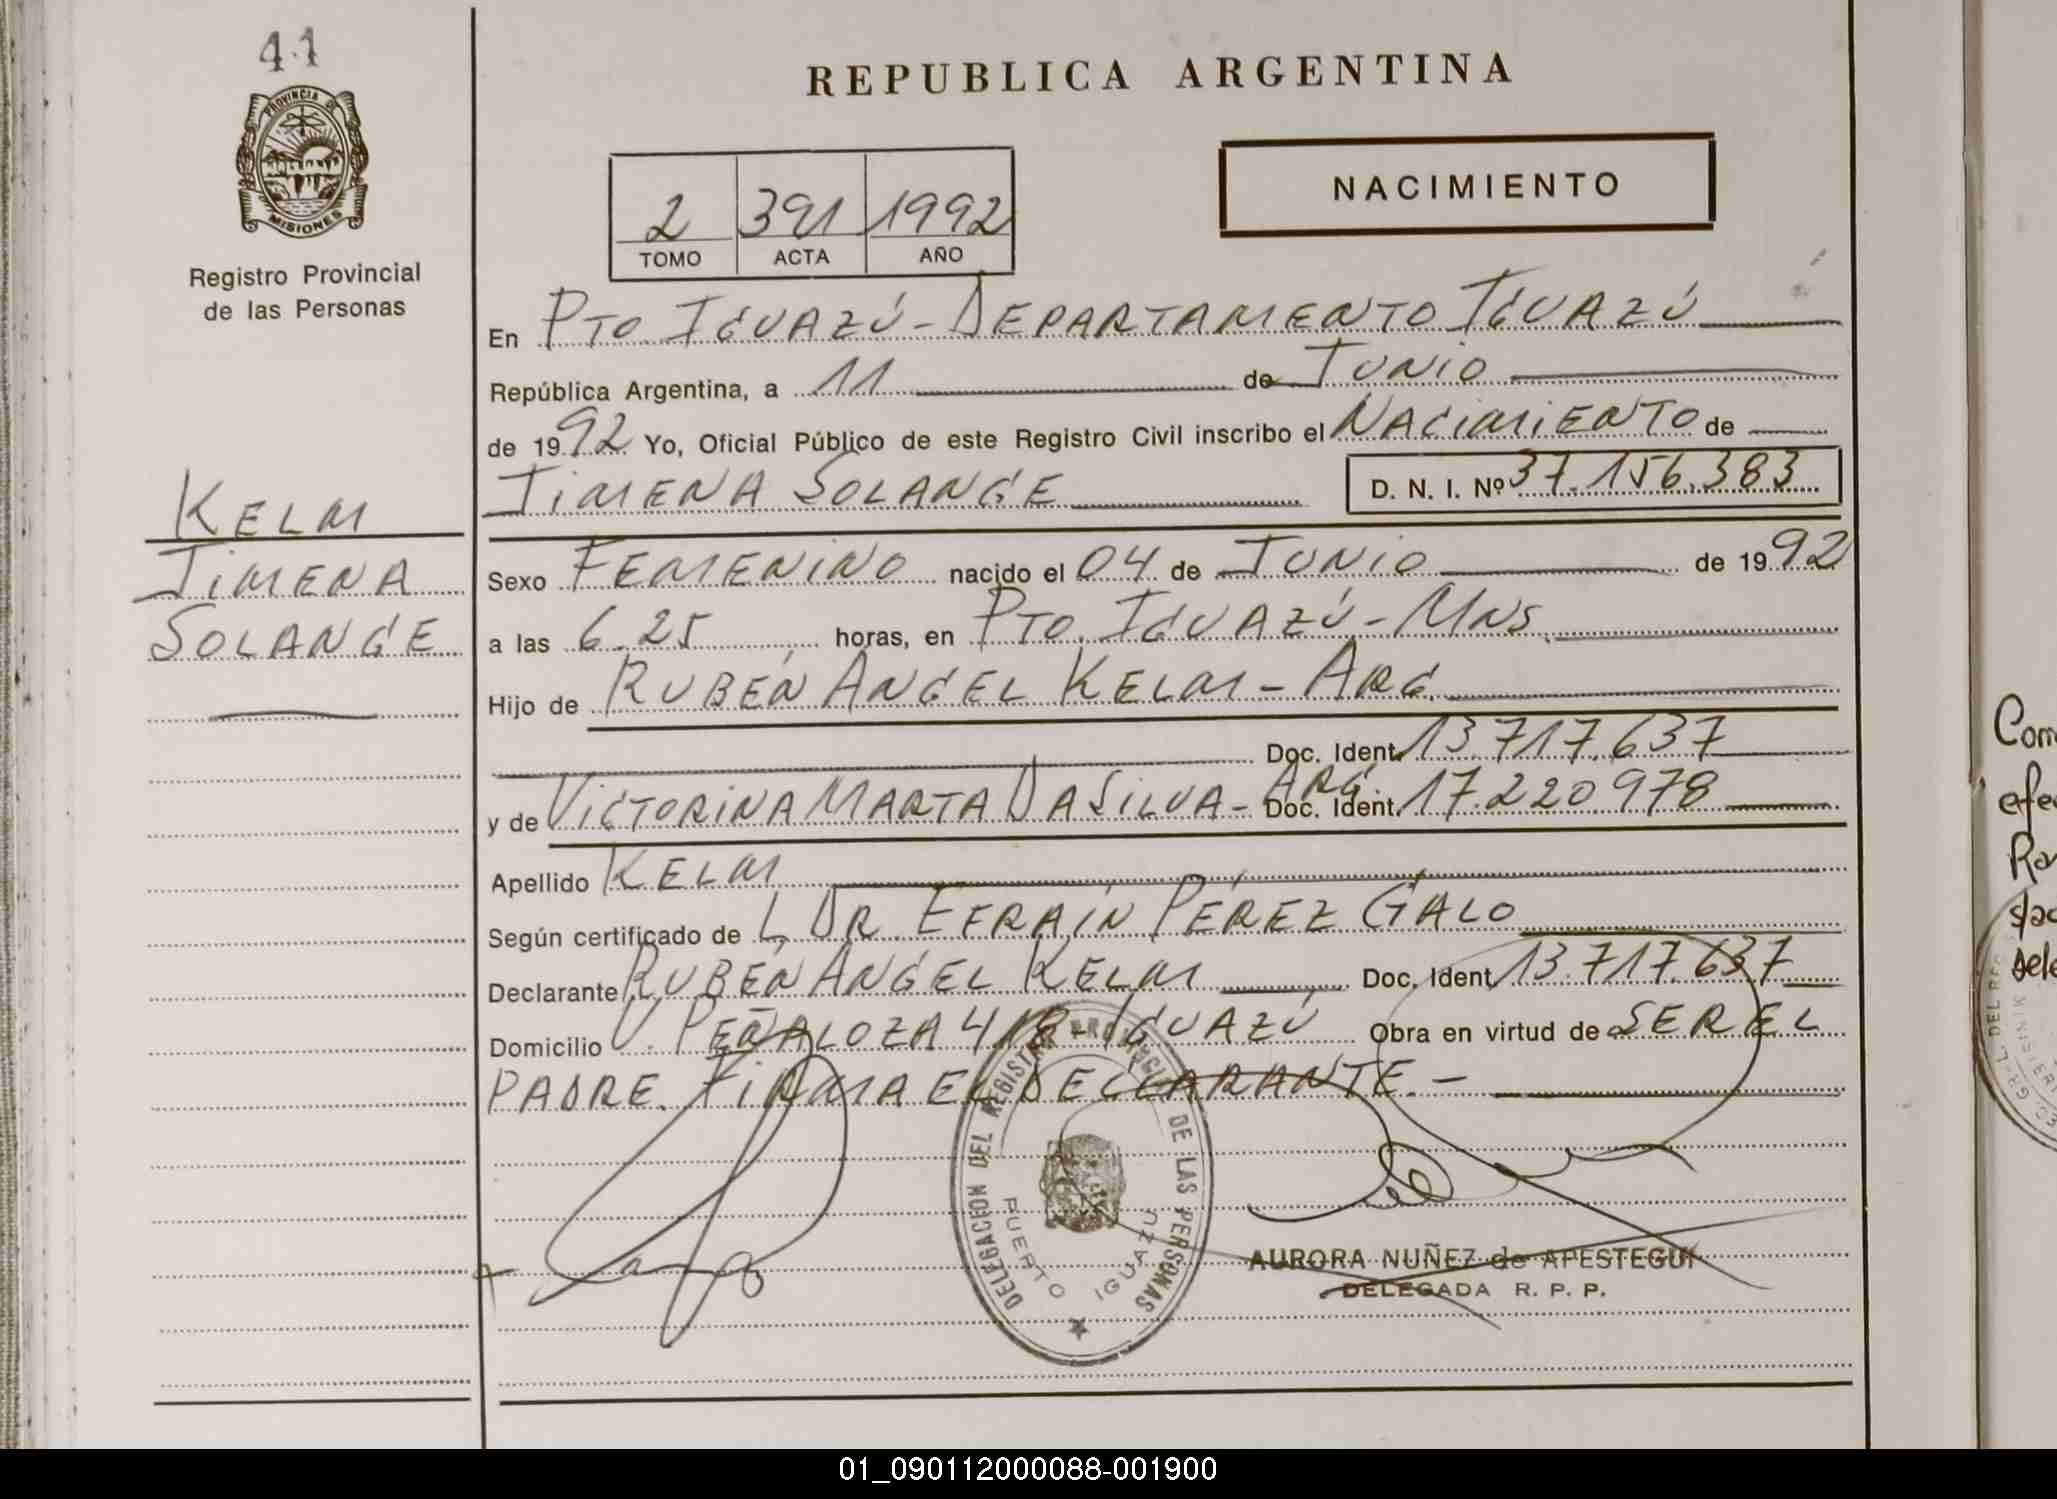 41
PROVINCIA DE
MISIONES
Registro Provincial
de las Personas
KELM
JIMENA
SOLANGE
REPUBLICA ARGENTINA
2 391 1992
TOMO ACTA AÑO
NACIMIENTO
En PTO. IGUAZÚ - DEPARTAMENTO IGUAZÚ
República Argentina, a 11 de JUNIO
de 1992 Yo, Oficial Público de este Registro Civil inscribo el NACIMIENTO de
JIMENA SOLANGE D. N. I. Nº 37.156.383
Sexo FEMENINO nacido el 04 de JUNIO de 1992
a las 6.25 horas, en PTO. IGUAZÚ - MNS.
Hijo de RUBÉN ANGEL KELM - ARG.
Doc. Ident. 13.717.637
y de VICTORINA MARTA DA SILVA - ARG. Doc. Ident. 17.220.978
Apellido KELM
Según certificado de L DR. EFRAÍN PÉREZ GALO
Declarante RUBÉN ANGEL KELM Doc. Ident. 13.717.637
Domicilio V. PEÑALOZA 418 - IGUAZÚ Obra en virtud de SER EL
PADRE. FIRMA EL DECLARANTE. -
DELEGACION DEL REGISTRO PROVINCIAL DE LAS PERSONAS
PUERTO IGUAZU
AURORA NUÑEZ de APESTEGUI
DELEGADA R. P. P.
01_090112000088-001900